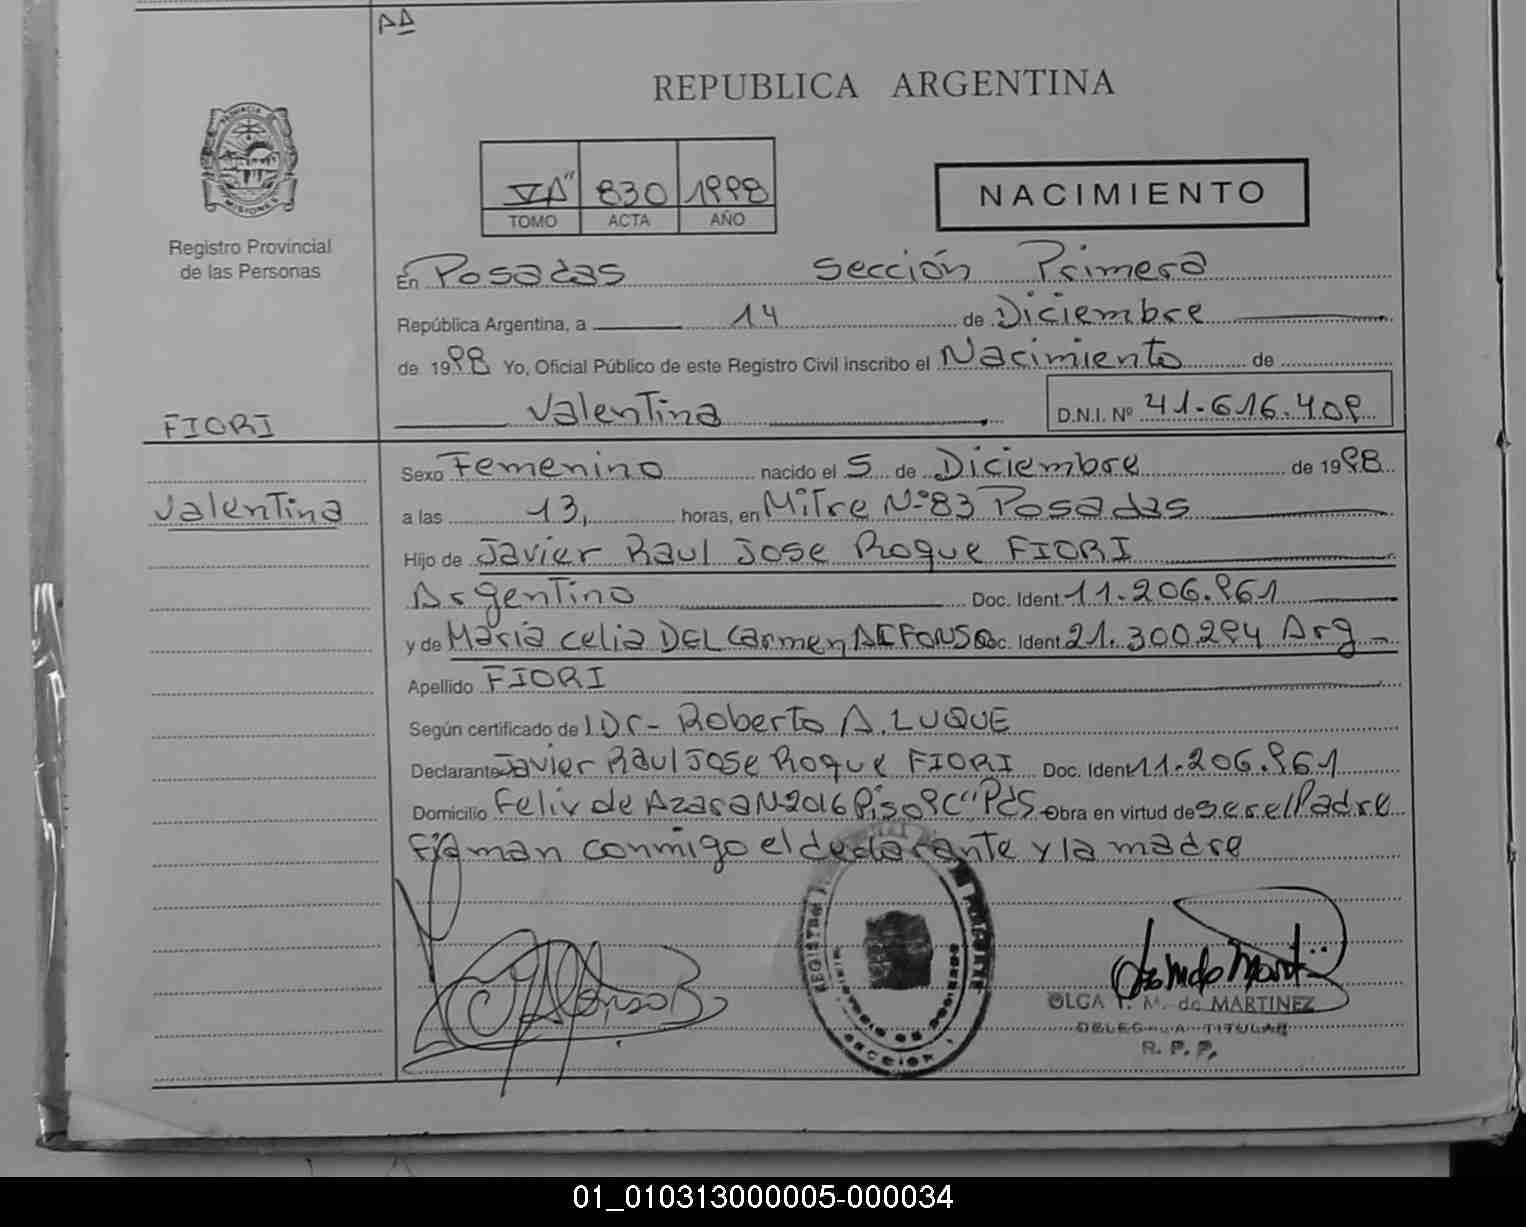 REPUBLICA ARGENTINA
PROVINCIA DE
MISIONES
Registro Provincial
de las Personas
830 1998
TOMO ACTA AÑO
NACIMIENTO
En Posadas Sección Primera
República Argentina, a 14 de Diciembre
de 1998 Yo, Oficial Público de este Registro Civil inscribo el Nacimiento de
Valentina D.N.I. Nº 41-616.409
FIORI
Valentina
Sexo Femenino nacido el 5 de Diciembre de 1998
a las 13, horas, en Mitre Nº83 Posadas
Hijo de Javier Raul Jose Roque FIORI
Argentino Doc. Ident. 11.206.961
y de Maria Celia DEL Carmen ALFONSO Doc. Ident. 21.300.294 Arg
Apellido FIORI
Según certificado de Dr- Roberto A. LUQUE
Declarante Javier Raul Jose Roque FIORI Doc. Ident. 11.206.961
Domicilio Felix de Azara Nº2016 Piso 9C" Pds Obra en virtud de ser el Padre
Firman conmigo el declarante y la madre
OLGA M. de MARTINEZ
TITULAR
R. P. P.
01_010313000005-000034